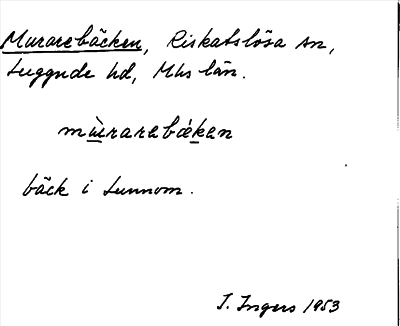 Murarebäcken, Riskatslösa sn,
Luggude hd, Mhs län.
mùrarebáken
bäck i Lunnom.
I. Ingers 1953